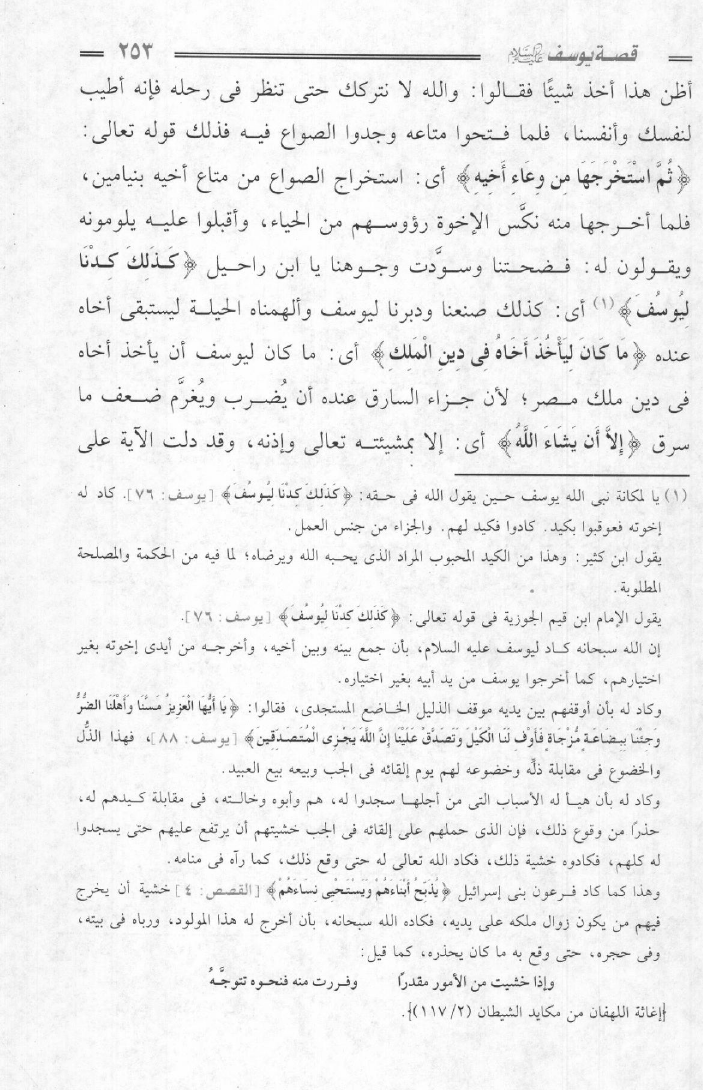 قصة يوسف عليه السلام ٢٥٣
أظن هذا أخذ شيئًا فقالوا: والله لا نتركك حتى تنظر فى رحله فإنه أطيب
لنفسك وأنفسنا، فلما فتحوا متاعه وجدوا الصواع فيه فذلك قوله تعالى:
﴿ثُمَّ اسْتَخْرَجَهَا مِن وِعَاءِ أَخِيهِ﴾ أى: استخراج الصواع من متاع أخيه بنيامين،
فلما أخرجها منه نكَّس الإخوة رؤوسهم من الحياء، وأقبلوا عليه يلومونه
ويقولون له: فضحتنا وسوَّدت وجوهنا يا ابن راحيل ﴿كَذَلِكَ كِدْنَا
لِيُوسُفَ﴾(١) أى: كذلك صنعنا ودبرنا ليوسف وألهمناه الحيلة ليستبقى أخاه
عنده ﴿مَا كَانَ لِيَأْخُذَ أَخَاهُ فِى دِينِ الْمَلِكِ﴾ أى: ما كان ليوسف أن يأخذ أخاه
فى دين ملك مصر؛ لأن جزاء السارق عنده أن يُضرب ويُغرَّم ضعف ما
سرق ﴿إِلاَّ أَن يَشَاءَ اللَّهُ﴾ أى: إلا بمشيئته تعالى وإذنه، وقد دلت الآية على
(١) يا لمكانة نبى الله يوسف حين يقول الله فى حقه: ﴿كَذَلِكَ كِدْنَا لِيُوسُفَ﴾ [يوسف: ٧٦]. كاد له
إخوته فعوقبوا بكيد. كادوا فكيد لهم. والجزاء من جنس العمل.
يقول ابن كثير: وهذا من الكيد المحبوب المراد الذى يحبه الله ويرضاه؛ لما فيه من الحكمة والمصلحة
المطلوبة.
يقول الإمام ابن قيم الجوزية فى قوله تعالى: ﴿كَذَلِكَ كِدْنَا لِيُوسُفَ﴾ [يوسف: ٧٦].
إن الله سبحانه كاد ليوسف عليه السلام، بأن جمع بينه وبين أخيه، وأخرجه من أيدى إخوته بغير
اختيارهم، كما أخرجوا يوسف من يد أبيه بغير اختياره.
وكاد له بأن أوقفهم بين يديه موقف الذليل الخاضع المستجدى، فقالوا: ﴿يَا أَيُّهَا الْعَزِيزُ مَسَّنَا وَأَهْلَنَا الضُّرُّ
وَجِئْنَا بِبِضَاعَةٍ مُّزْجَاةٍ فَأَوْفِ لَنَا الْكَيْلَ وَتَصَدَّقْ عَلَيْنَا إِنَّ اللَّهَ يَجْزِى الْمُتَصَدِّقِينَ﴾ [يوسف: ٨٨]، فهذا الذُّل
والخضوع فى مقابلة ذلِّه وخضوعه لهم يوم إلقائه فى الجب وبيعه بيع العبيد.
وكاد له بأن هيأ له الأسباب التى من أجلها سجدوا له، هم وأبوه وخالته، فى مقابلة كيدهم له،
حذرًا من وقوع ذلك، فإن الذى حملهم على إلقائه فى الجب خشيتهم أن يرتفع عليهم حتى يسجدوا
له كلهم، فكادوه خشية ذلك، فكاد الله تعالى له حتى وقع ذلك، كما رآه فى منامه.
وهذا كما كاد فرعون بنى إسرائيل ﴿يُذَبِّحُ أَبْنَاءَهُمْ وَيَسْتَحْيِى نِسَاءَهُمْ﴾ [القصص: ٤] خشية أن يخرج
فيهم من يكون زوال ملكه على يديه، فكاده الله سبحانه، بأن أخرج له هذا المولود، ورباه فى بيته،
وفى حجره، حتى وقع به ما كان يحذره، كما قيل:
وإذا خشيت من الأمور مقدرًا وفررت منه فنحوه تتوجَّهُ
{إغاثة اللهفان من مكايد الشيطان (٢/ ١١٧)}.